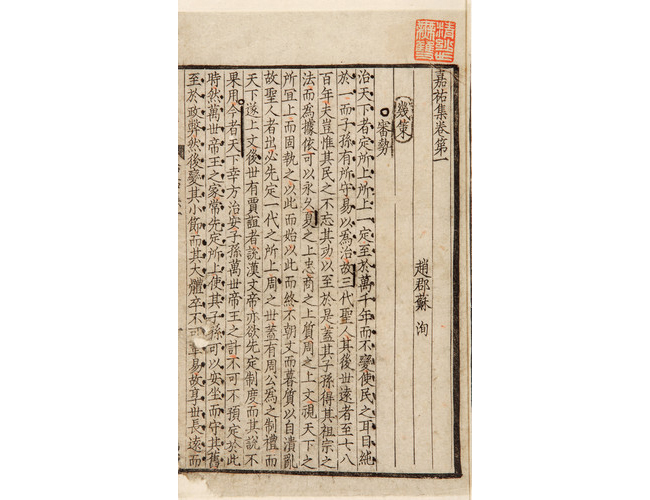 嘉祐集卷第一
趙郡蘇 洵
幾策
審勢
治天下者定所上所上一定至於萬千年而不變使民之耳目純
於一而子孫有所守易以為治故三代聖人其後世遠者至七八
百年夫豈惟其民之不忘其功以至於是蓋其子孫得其祖宗之
法而為據依可以永久夏之上忠商之上質周之上文視天下之
所宜上而固執之以此而始以此而終不朝文而暮質以自潰亂
故聖人者出必先定一代之所上周之世蓋有周公為之制禮而
天下遂上文後世有賈誼者說漢文帝亦欲先定制度而其說不
果用今者天下幸方治安子孫萬世帝王之計不可不預定於此
時然萬世帝王之家常先定所上使其子孫可以安坐而守其舊
至於政弊然後變其小節而其大體卒不可革易故享世長遠而